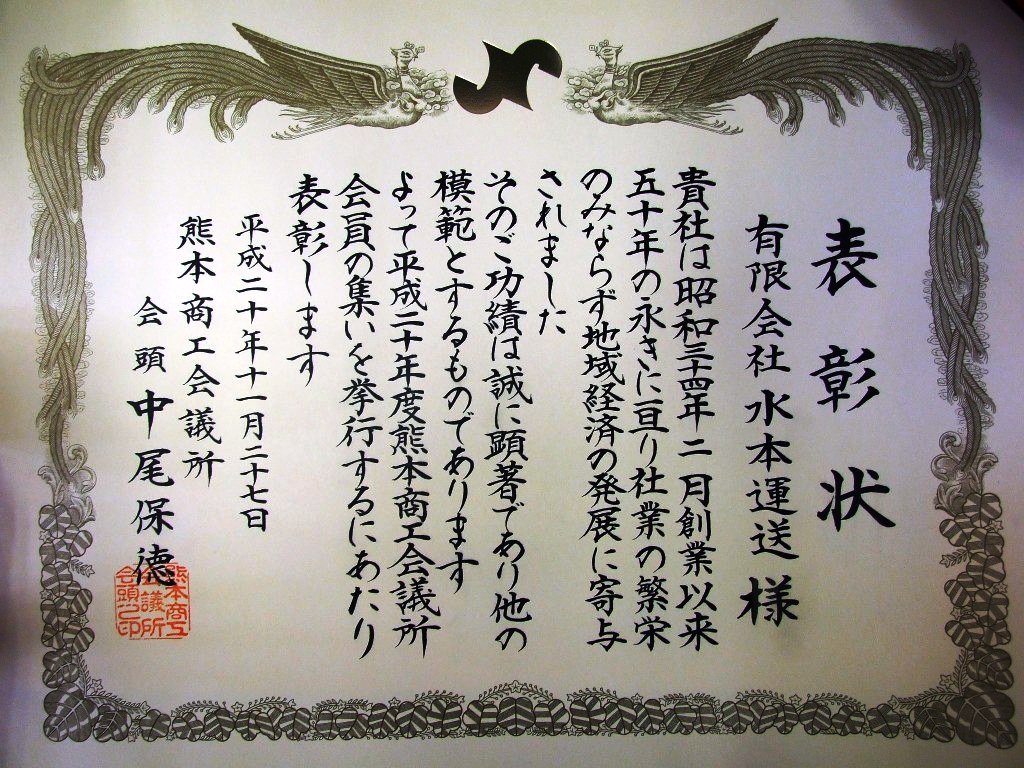 表彰状
有限会社水本運送様
貴社は昭和三十四年二月創業以来
五十年の永きに亘り社業の繁栄
のみならず地域経済の発展に寄与
されました
そのご功績は誠に顕著であり他の
模範とするものであります
よって平成二十年度熊本商工会議所
会員の集いを挙行するにあたり
表彰します
平成二十年十一月二十七日
熊本商工会議所
会頭中尾保德
熊本商工
会議所
会頭之印